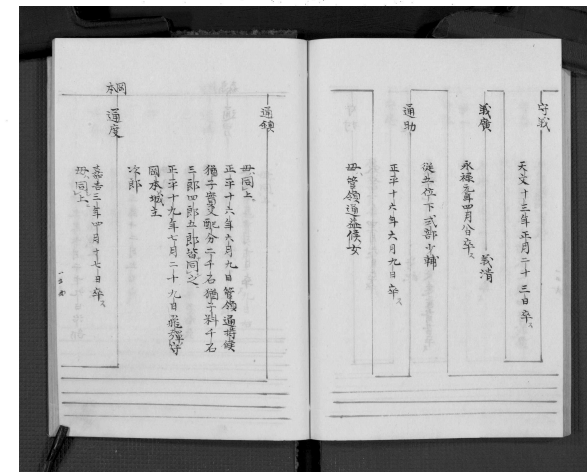 守茂
天文十三年正月二十三日卒ス
義廣
永禄元年四月八日卒ス
義清
従五位下式部少輔
通助
正平十六年六月九日卒ス
母管領通盛候女
通顕
母同上
正平十六年六月九日管領通時候
猶子實父配分二千石猶子料千石
三郎四郎五郎皆同之
正平十九年七月二十九日飛騨守
岡本城主
次郎
岡本
通度
嘉吉三年四月十七日卒ス
母同上